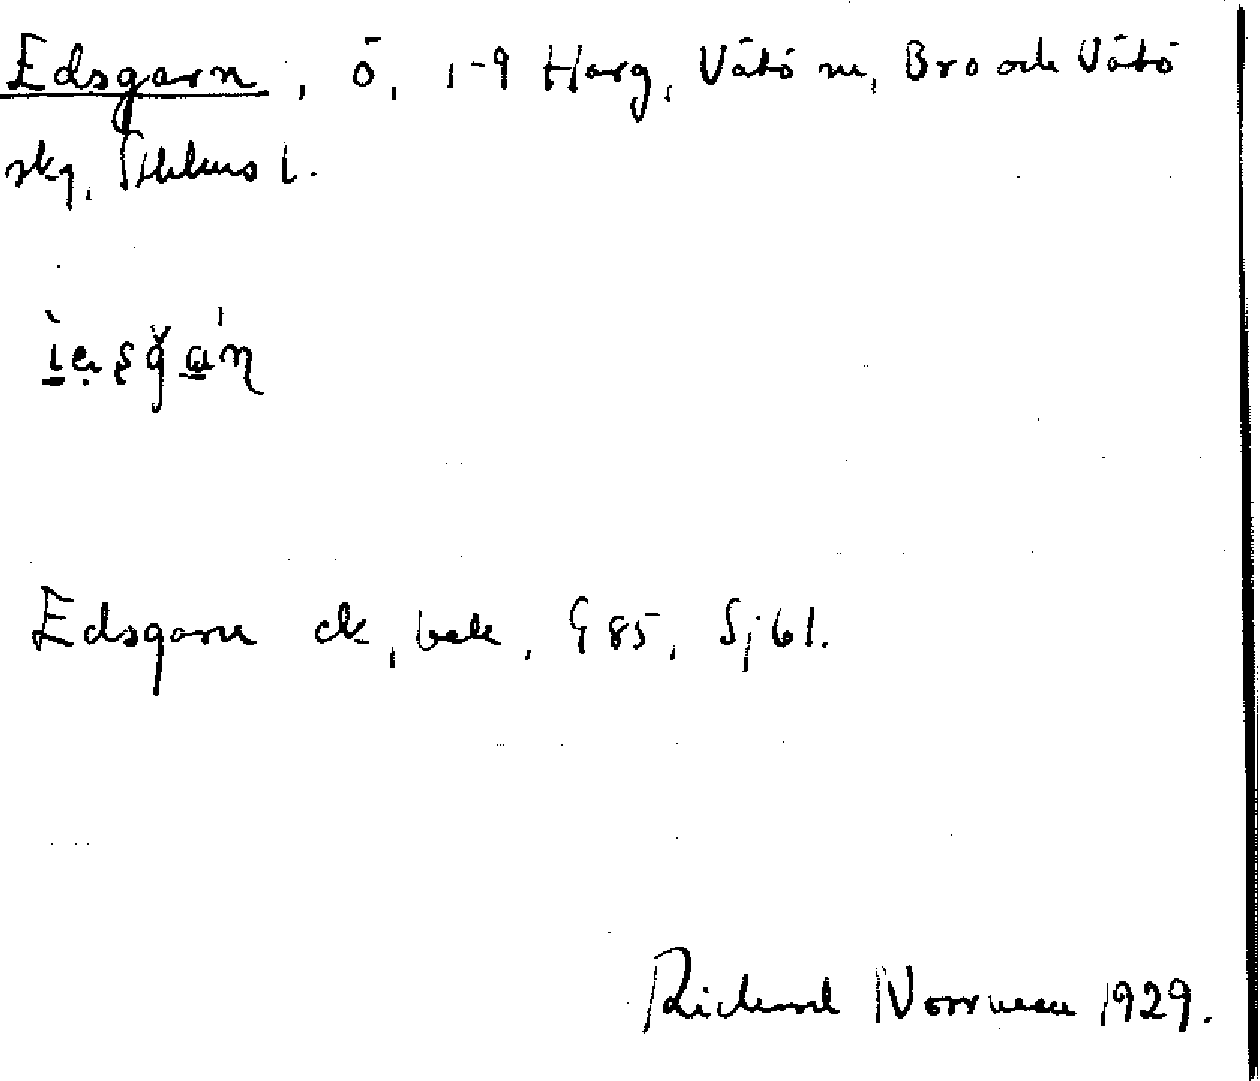 Edsgarn, ö, 1-9 Harg, Vätö sn, Bro och Vätö
skg, Sthlms l.
Edsgarn ek, bek, G 85, Sj 61.
Richard Norrman 1929.